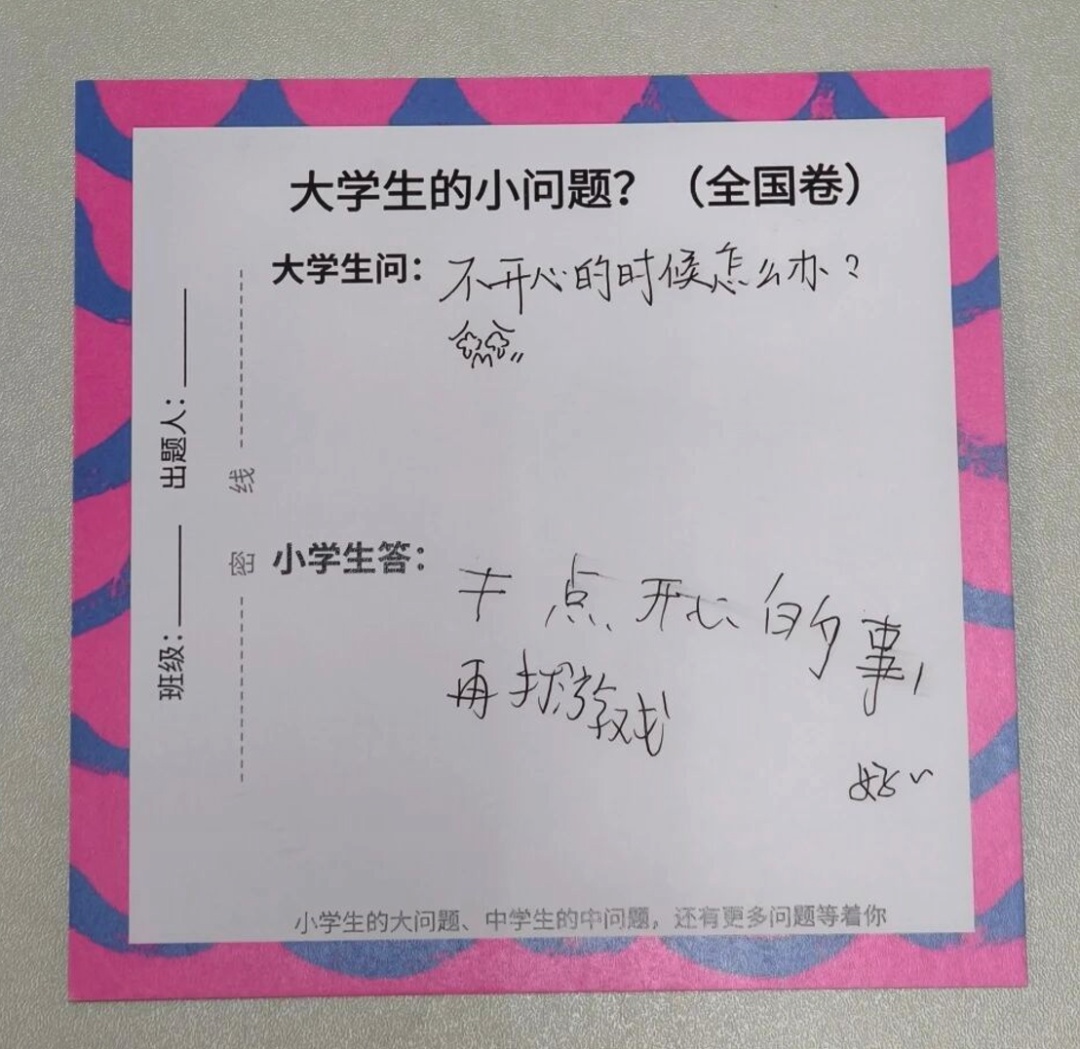 大学生的小问题？（全国卷）
大学生问：不开心的时候怎么办？
小学生答：干点开心的事，
再打游戏
好~
出题人：
班级：
线
密
小学生的大问题、中学生的中问题，还有更多问题等着你